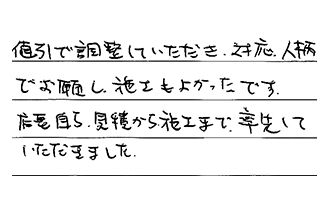 値引で調整していただき、対応、人柄
でお願し、施工もよかったです。
店長自ら、見積から施工まで、率先して
いただきました。